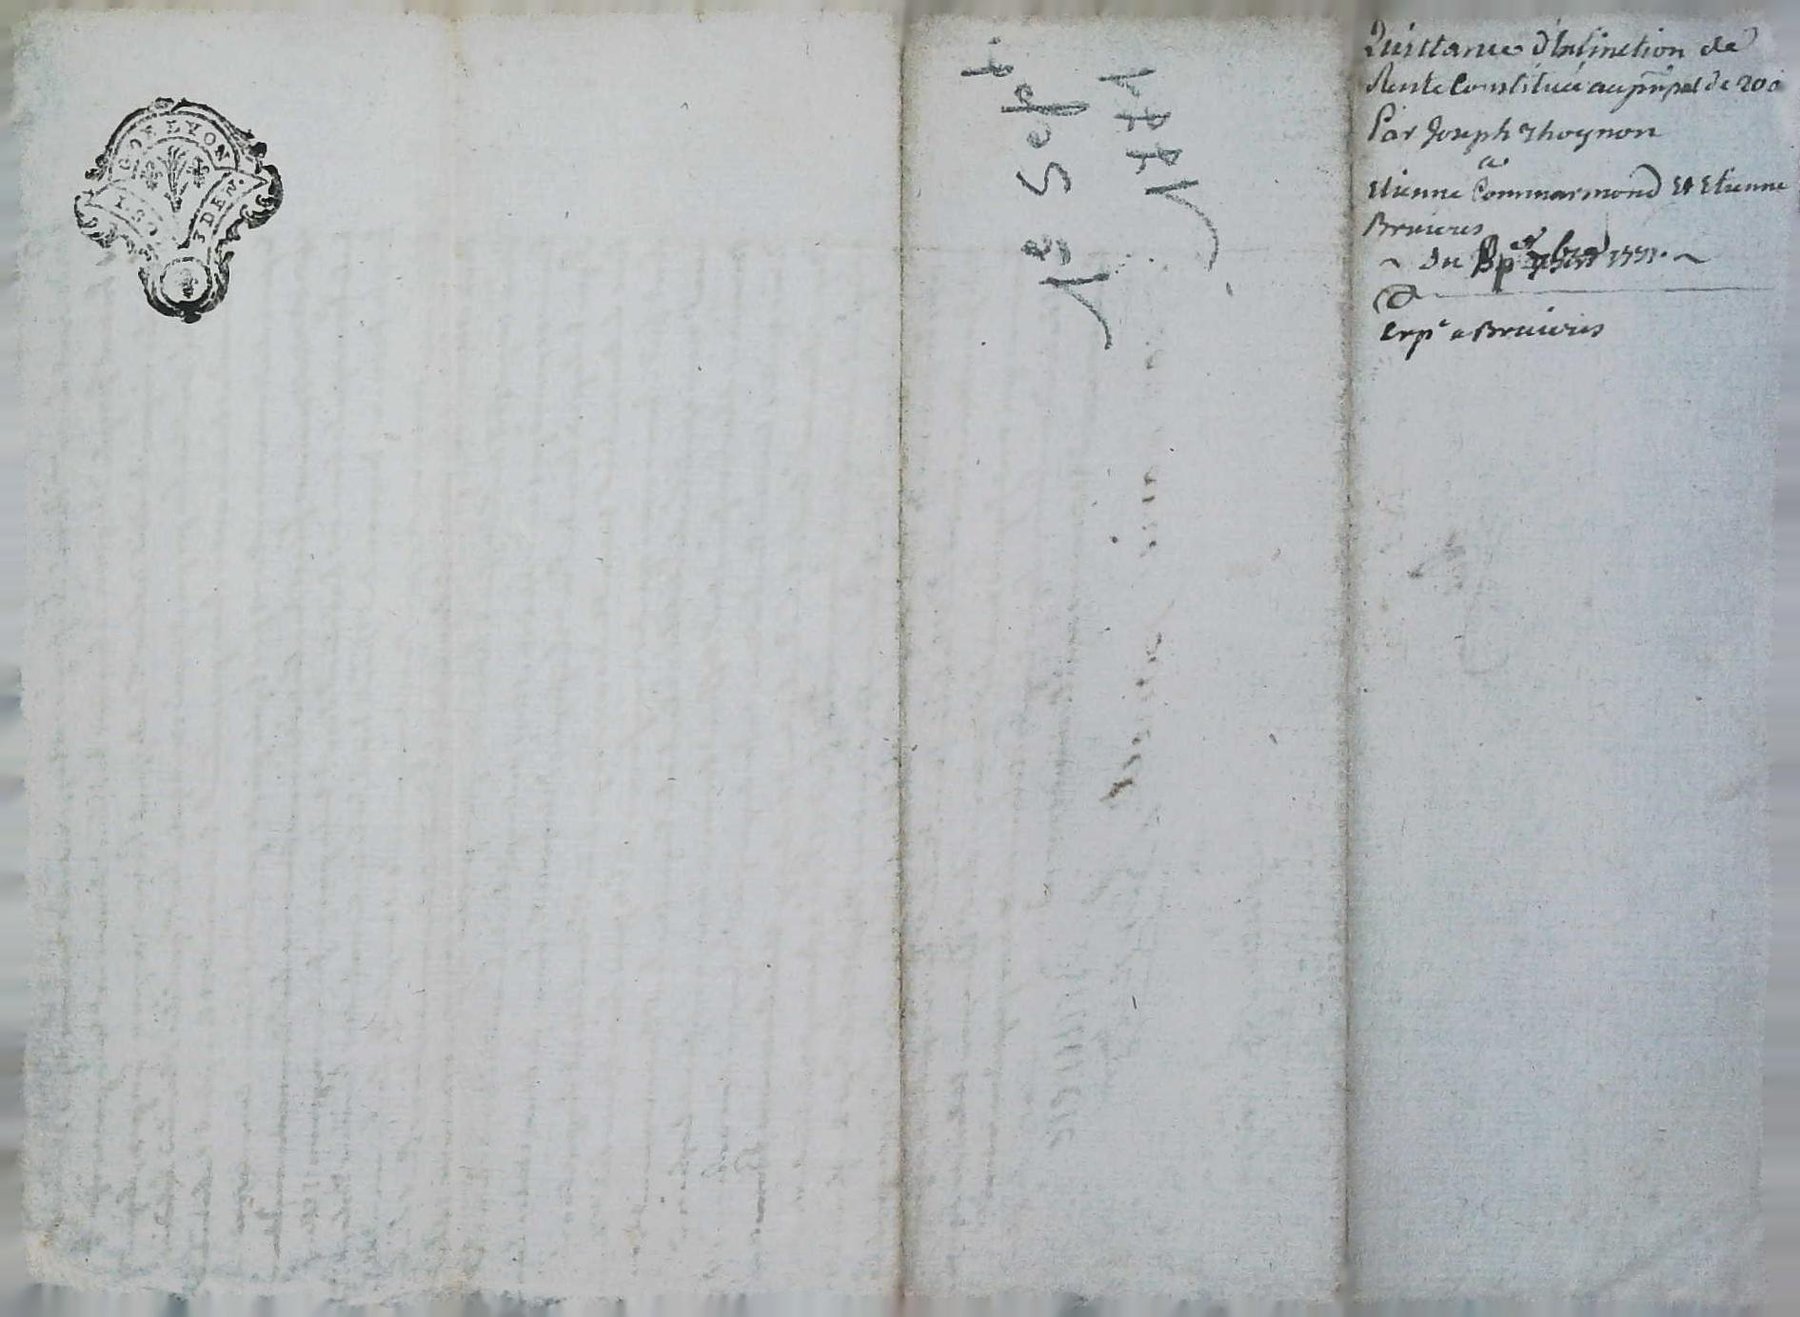 GÑX LYON
1 S. 3 DEN.
18 Sept.
1771
Quittance d'Extinction de
Rente Constituée au prñpal de 200
Par Joseph Thoynon
a
Etienne Commarmond Et Etienne
Bruieres
Du 1771.
Exp.e a Bruieres